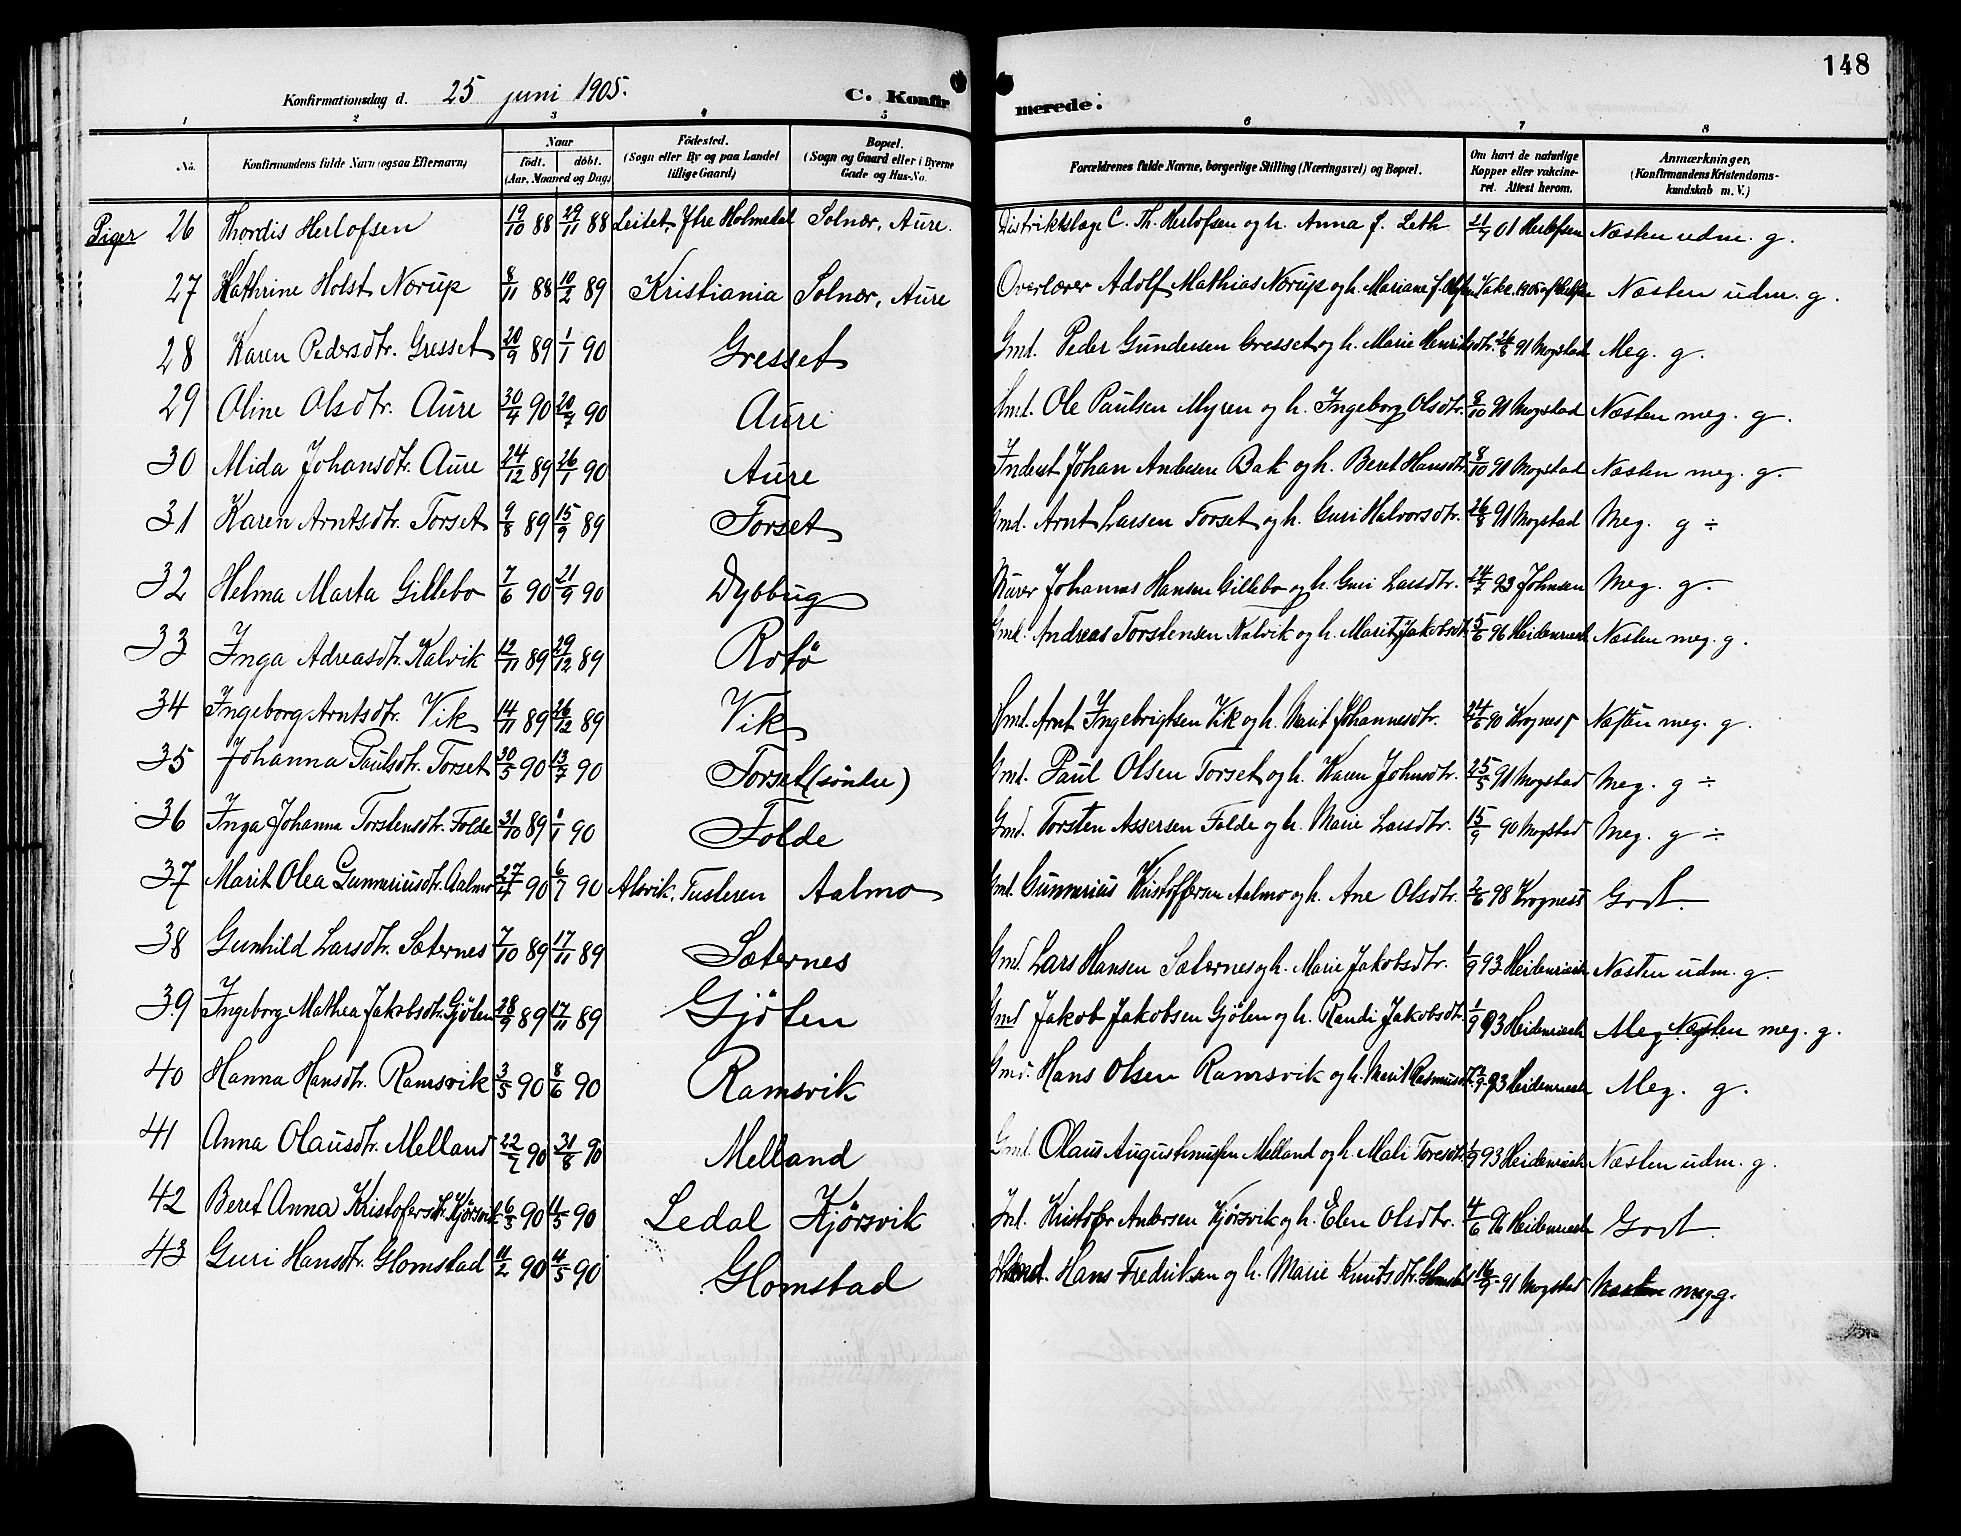 148
Konfirmationsdag d. 25 juni 1905. C. Konfirmerede.
1 2 3 4 5 6 7 8
No. Konfirmandens fulde Navn (ogsaa Efternavn) Naar født. døbt. (Aar, Maaned og Dag) Fødested. (Sogn eller By og paa Landet tillige Gaard) Bopæl. (Sogn og Gaard eller i Byerne Gade og Hus-No. Forældrenes fulde Navne, borgerlige Stilling (Næringsvei) og Bopæl. Om havt de naturlige Kopper eller vakcineret. Attest herom. Anmærkninger. (Konfirmandens Kristendomskundskab m. V.)
Piger 26 Thordis Herlofsen 19/10 88 29/11 88 Leitet, Ytre Holmedal Solnør, Aure. Distriktslæge C. Th. Herlofsen og h. Anna f. Leth 21/7 01 Herlofsen Næsten udm. g.
27 Kathrine Holst Norup 8/11 88 10/2 89 Kristiania Solnør, Aure Overlærer Adolf Mathias Norup og h. Mariane f. Næsten udm. g.
28 Karen Pedersdtr. Gresset 20/9 89 1/1 90 Gresset Gmd. Peder Gundersen Gresset og h. Marie Henriksdtr. 91 Mogstad Meg. g.
29 Oline Olsdtr. Aure 30/4 90 20/7 90 Aure Ole Paulsen Myren og h. Ingeborg Olsdtr. 8/10 91 Mogstad Næsten meg. g.
30 Alida Johansdtr. Aure 24/12 89 26/1 90 Aure Inderst Johan Andersen Bak og h. Beret Hansdtr. 8/10 91 Mogstad Næsten meg. g.
31 Karen Arntsdtr. Torset 9/8 89 15/9 89 Torset Gmd. Arnt Larsen Torset og h. Guri Halvorsdtr. 26/8 91 Mogstad Meg. g ÷
32 Helma Marta Gillebo 7/6 90 21/9 90 Dybbug Murer Johannes Hansen Gillebo og h. Guri Larsdtr. 24/7 93 Johnsen Meg. g.
33 Inga Adreasdtr. Kalvik 12/11 89 29/12 89 Rotø Gmd. Andreas Torstensen Kalvik og h. Marit Jakobsdt. 5/6 96 Heidenreich Næsten meg. g.
34 Ingeborg Arntsdtr. Vik 14/11 89 26/12 89 Vik Arnt Ingebrigtsen Vik og h. Marit Johannesdtr. 90 Krogness Næsten meg. g.
35 Johanna Paulsdtr. Torset 30/5 90 13/7 90 Torset (søndre) Gmd. Paul Olsen Torset og h. Karen Johnsdtr. 25/5 91 Mogstad Meg. g ÷
36 Inga Johanna Torstensdtr. Folde 31/10 89 1/1 90 Folde Gmd. Torsten Assersen Folde og h. Marie Larsdtr. 15/9 90 Mogstad Meg. g ÷
37 Marit Olea Gunnariusdtr. Aalmo 27/4 90 6/7 90 Alsvik, Tusteren Aalmo Gmd. Gunnarius Kristoffersen Aalmo og h. Ane Olsdtr. 2/6 98 Krogness Godt.
38 Gunhild Larsdtr. Sæternes 7/10 89 17/11 89 Sæternes Gmd. Lars Hansen Sæternes og h. Marie Jakobsdtr. 1/9 93 Heidenreich Næsten udm. g.
39 Ingeborg Mathea Jakobsdtr. Gjølen 28/9 89 17/11 89 Gjølen Gmd Jakob Jakobsen Gjølen og h. Randi Jakobsdt. 1/9 93 Heidenreich Meg Næsten meg. g.
40 Hanna Hansdtr. Ramsvik 3/5 90 8/6 90 Ramsvik Gmd. Hans Olsen Ramsvik og h. Marit Rasmusdt. 93 Heidenreich Meg. g.
41 Anna Olausdtr. Melland 22/7 90 31/8 90 Melland Gmd. Olaus Augustinussen Melland og h. Mali Toresdtr. 1/9 93 Heidenreich Næsten udm. g.
42 Beret Anna Kristofersdtr. Kjørsvik 6/3 90 11/5 90 Ledal Kjørsvik Kristofer Andersen Kjørsvik og h. Elen Olsdtr. 4/6 96 Heidenreich Godt.
43 Guri Hansdtr. Glomstad 11/2 90 11/5 90 Glomstad Hans Fredriksen og h. Marie Knutsdtr. Glomstad 16/9 91 Mogstad Næsten meg g.